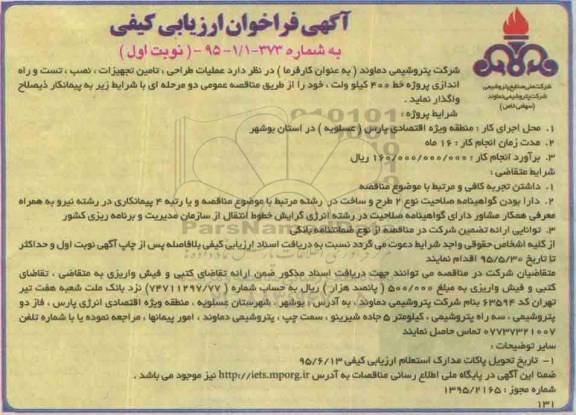 آگهی فراخوان ارزیابی کیفی
به شماره ۳۷۳-۱/۱-۹۵ - ( نوبت اول )
شرکت ملی صنایع پتروشیمی
شرکت پتروشیمی دماوند
(سهامی خاص)
شرکت پتروشیمی دماوند ( به عنوان کارفرما ) در نظر دارد عملیات طراحی ، تامین تجهیزات ، نصب ، تست و راه
اندازی پروژه خط ۴۰۰ کیلو ولت ، خود را از طریق مناقصه عمومی دو مرحله ای با شرایط زیر به پیمانکار ذیصلاح
واگذار نماید .
شرایط پروژه :
۱. محل اجرای کار : منطقه ویژه اقتصادی پارس ( عسلویه ) در استان بوشهر
۲. مدت زمان انجام کار : ۱۶ ماه
۳. برآورد انجام کار : ۱۶۰/۰۰۰/۰۰۰/۰۰۰ ریال
شرایط متقاضی :
۱. داشتن تجربه کافی و مرتبط با موضوع مناقصه
۲. دارا بودن گواهینامه صلاحیت نوع ۲ طرح و ساخت در رشته مرتبط با موضوع مناقصه و یا رتبه ۴ پیمانکاری در رشته نیرو به همراه
معرفی همکار مشاور دارای گواهینامه صلاحیت در رشته انرژی گرایش خطوط انتقال از سازمان مدیریت و برنامه ریزی کشور
۳. توانایی ارائه تضمین شرکت در مناقصه از نوع ضمانتنامه بانکی
از کلیه اشخاص حقوقی واجد شرایط دعوت می گردد نسبت به دریافت اسناد ارزیابی کیفی بلافاصله پس از چاپ آگهی نوبت اول و حداکثر
تا تاریخ ۹۵/۵/۳۰ اقدام نمایند
متقاضیان شرکت در مناقصه می توانند جهت دریافت اسناد مذکور ضمن ارائه تقاضای کتبی و فیش واریزی به متقاضی ، تقاضای
کتبی و فیش واریزی به مبلغ ۵۰۰/۰۰۰ ( پانصد هزار ) ریال به حساب شماره ( ۷۴۷۱۱۲۹۷/۷۷ ) نزد بانک ملت شعبه هفت تیر
تهران کد ۶۳۵۹۴ بنام شرکت پتروشیمی دماوند ، به آدرس : بوشهر ، شهرستان عسلویه ، منطقه ویژه اقتصادی انرژی پارس ، فاز دو
پتروشیمی ، سه راه پتروشیمی ، کیلومتر ۵ جاده شیرینو ، سمت چپ ، پتروشیمی دماوند ، امور پیمانها ، مراجعه نموده یا با شماره تلفن
۰۷۷۳۷۳۲۱۰۰۷ تماس حاصل نمایند
سایر توضیحات :
۱- تاریخ تحویل پاکات مدارک استعلام ارزیابی کیفی ۹۵/۶/۱۳
ضمنا این آگهی در پایگاه ملی اطلاع رسانی مناقصات به آدرس http://iets.mporg.ir نیز موجود می باشد .
شماره مجوز : ۱۳۹۵/۲۱۶۵
۱۳۱